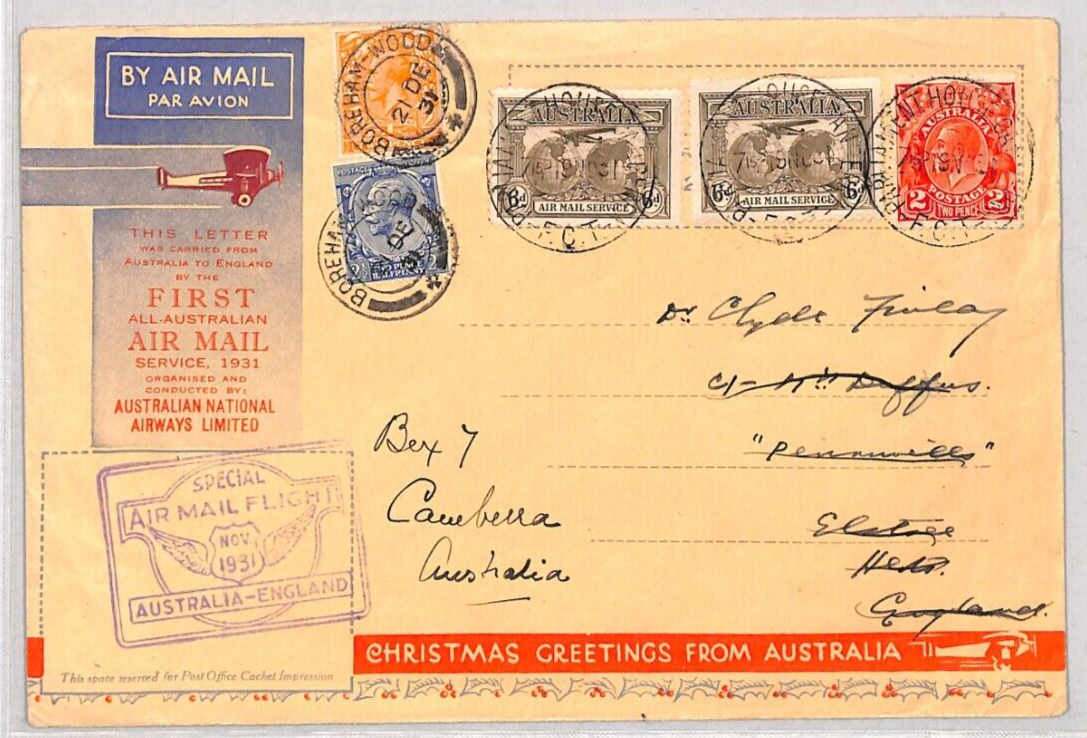 BY AIR MAIL
PAR AVION
THIS LETTER
WAS CARRIED FROM
AUSTRALIA TO ENGLAND
BY THE
FIRST
ALL-AUSTRALIAN
AIR MAIL
SERVICE, 1931
ORGANISED AND
CONDUCTED BY:
AUSTRALIAN NATIONAL
AIRWAYS LIMITED
BOREHAM-WOOD
21 DE
31
BOREHAM WOOD
DE
HALFPENNY
AUSTRALIA
6d 6d
AIR MAIL SERVICE
F.C.T.
AUSTRALIA
6d 6d
AIR MAIL SERVICE
F.C.T.
AUSTRALIA
POSTAGE
2 TWO PENCE 2
PARLIAMENT HOUSE
F.C.T.
Dr Clyde Finlay
c/-
"Pennwills"
Elstree
Herts.
England.
Box 7
Canberra
Australia
SPECIAL
AIR MAIL FLIGHT
NOV.
1931
AUSTRALIA-ENGLAND
This space reserved for Post Office Cachet Impression
CHRISTMAS GREETINGS FROM AUSTRALIA